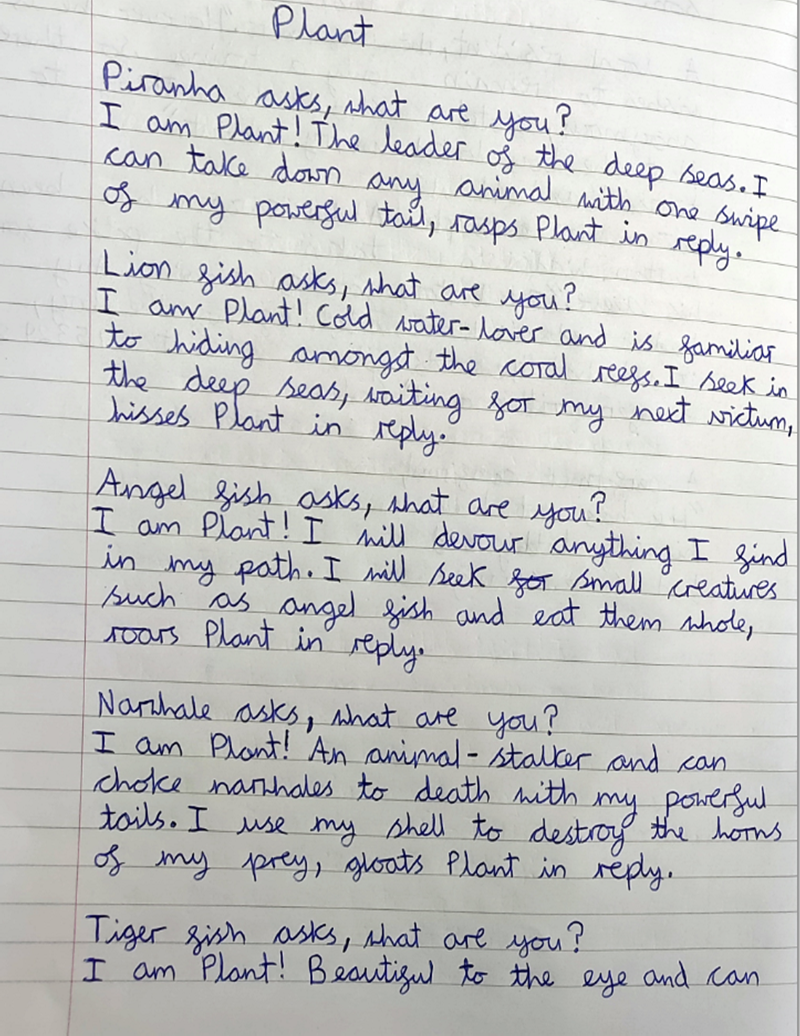 Plant
Piranha asks, what are you?
I am Plant! The leader of the deep seas. I
can take down any animal with one swipe
of my powerful tail, rasps Plant in reply.
Lion fish asks, what are you?
I am Plant! Cold water-lover and is familiar
to hiding amongst the coral reefs. I seek in
the deep seas, waiting for my next victum,
hisses Plant in reply.
Angel fish asks, what are you?
I am Plant! I will devour anything I find
in my path. I will seek for small creatures
such as angel fish and eat them whole,
roars Plant in reply.
Narwhale asks, what are you?
I am Plant! An animal-stalker and can
choke narwhales to death with my powerful
tails. I use my shell to destroy the horns
of my prey, gloats Plant in reply.
Tiger fish asks, what are you?
I am Plant! Beautiful to the eye and can